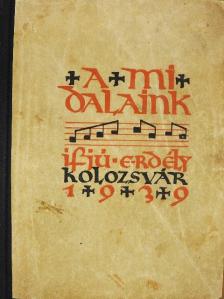 A MI
DALAINK
ifjú·ERdély
KOLOZSVÁR
1939